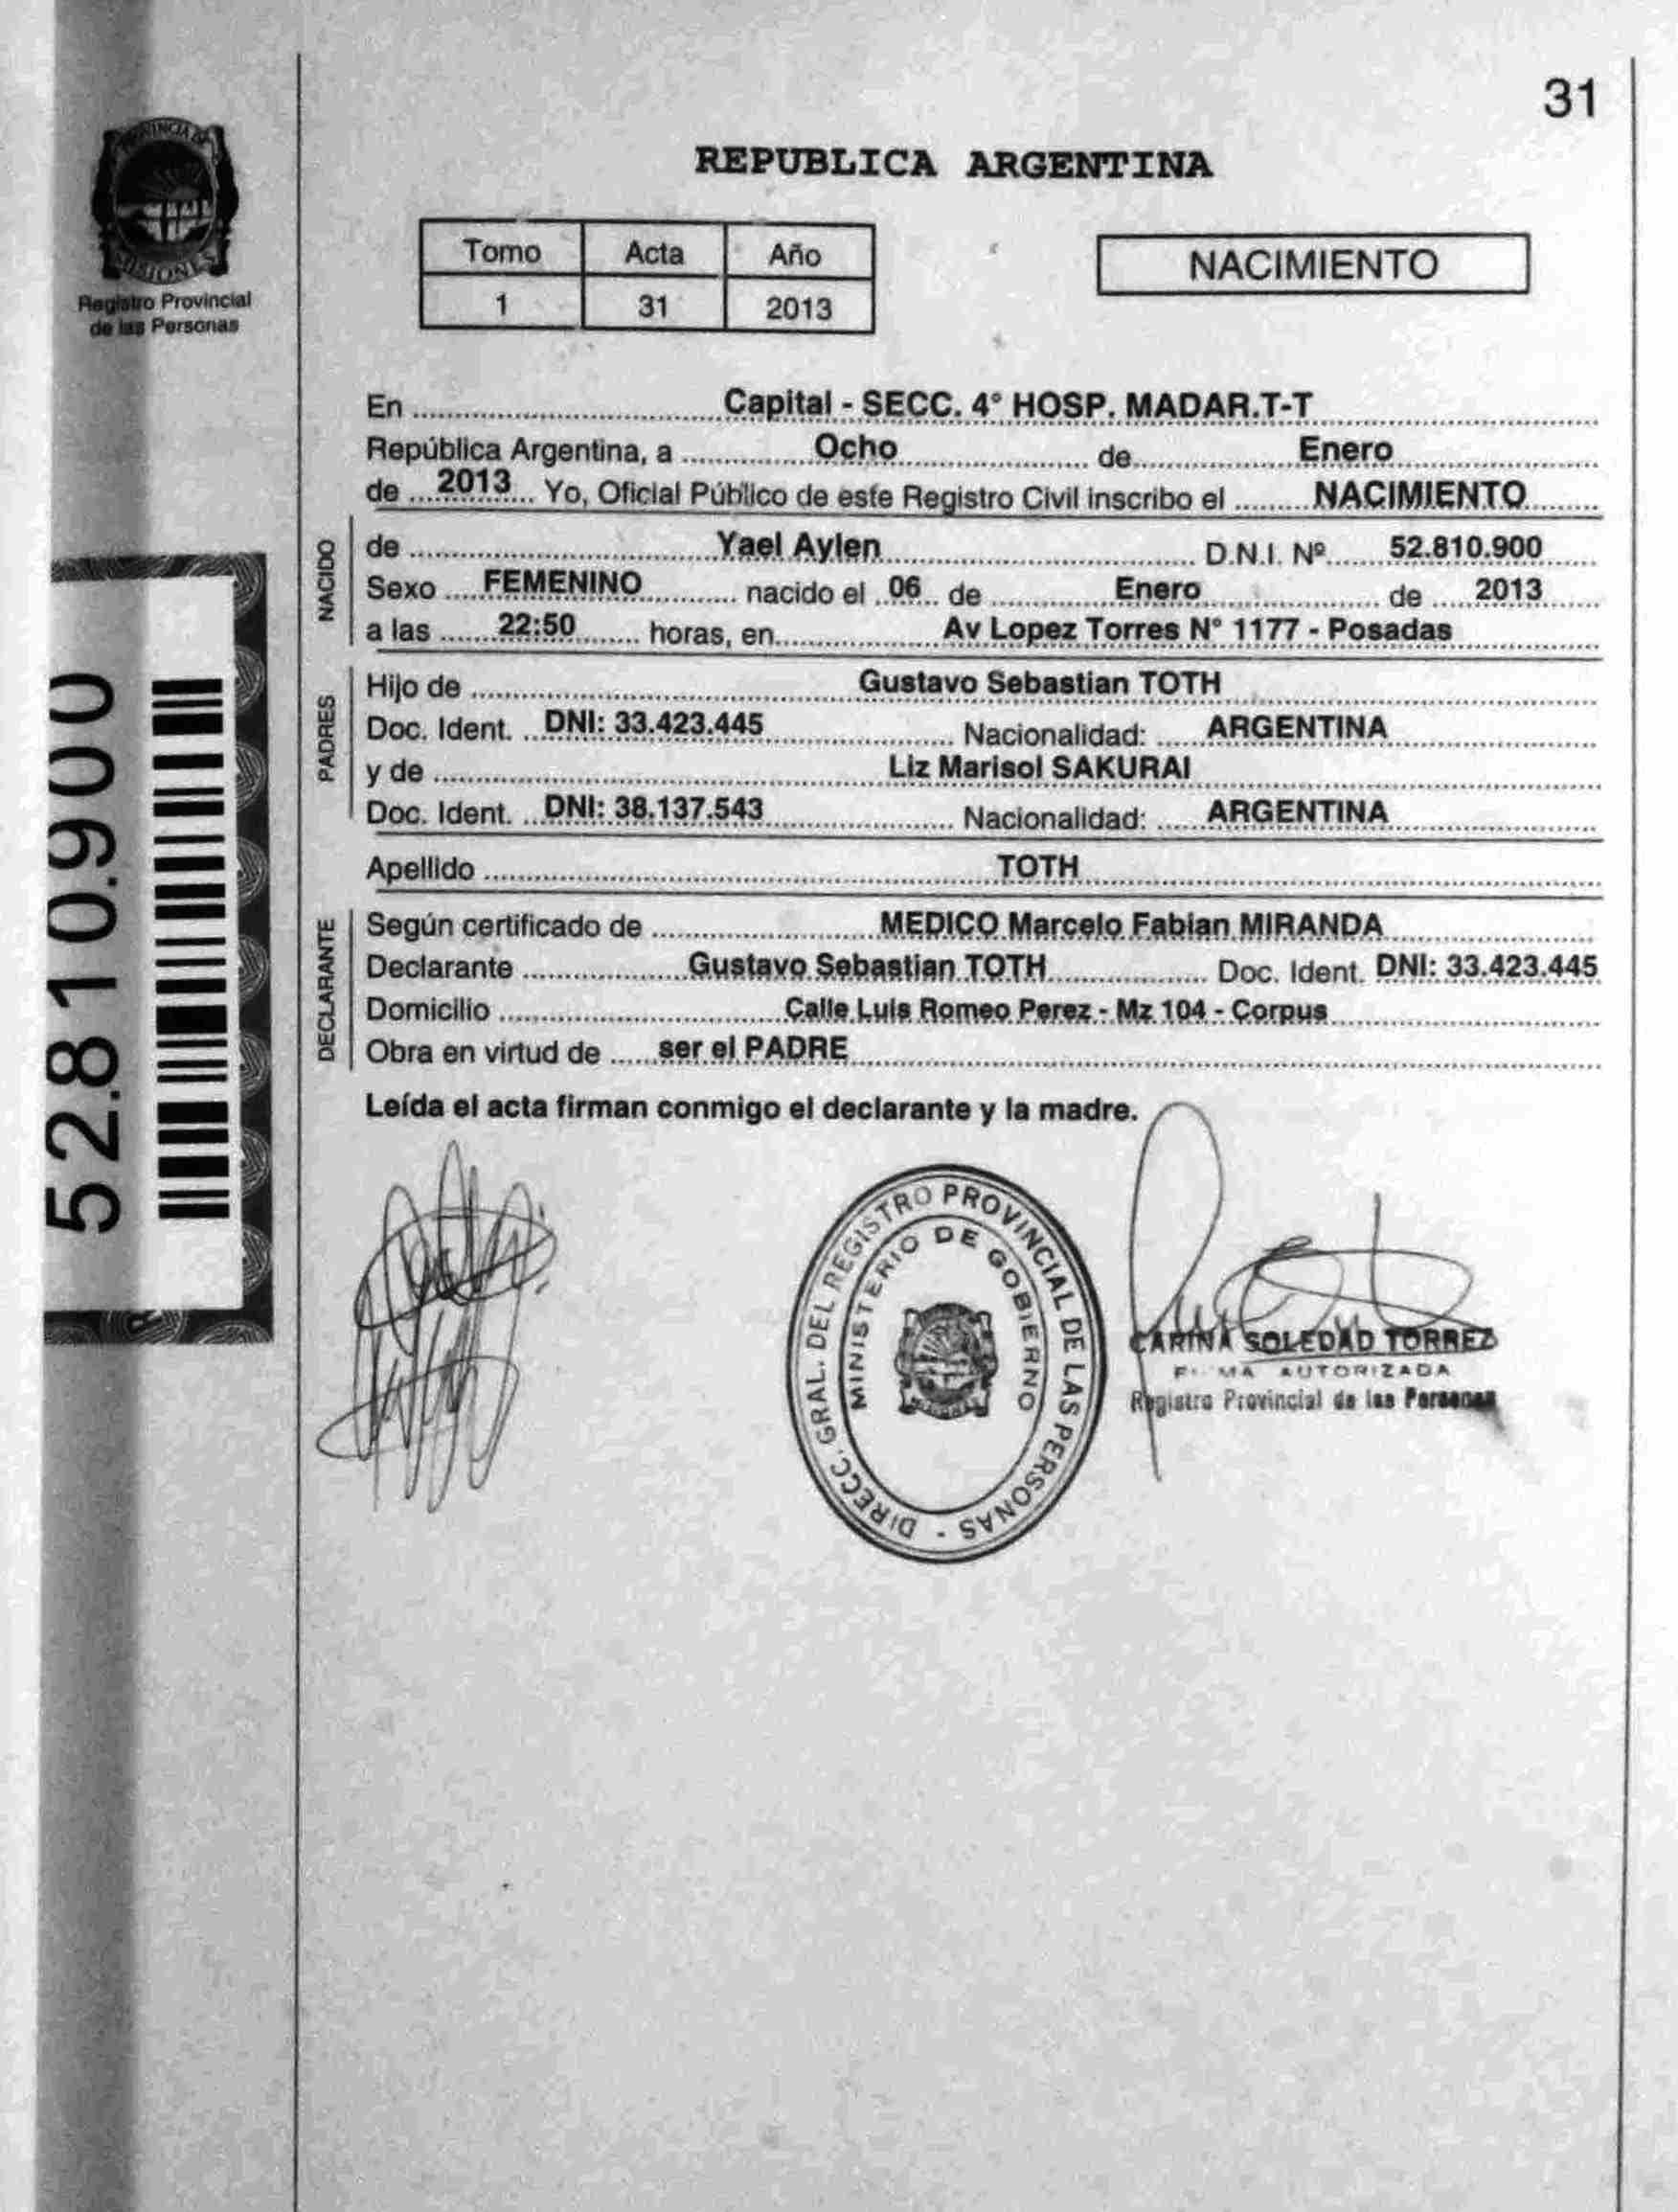 31
REPUBLICA ARGENTINA
PROVINCIA DE
MISIONES
Registro Provincial
de las Personas
Tomo Acta Año
1 31 2013
NACIMIENTO
En Capital - SECC. 4° HOSP. MADAR.T-T
República Argentina, a Ocho de Enero
de 2013 Yo, Oficial Público de este Registro Civil inscribo el NACIMIENTO
NACIDO
de Yael Aylen D.N.I. Nº 52.810.900
Sexo FEMENINO nacido el 06 de Enero de 2013
a las 22:50 horas, en Av Lopez Torres N° 1177 - Posadas
PADRES
Hijo de Gustavo Sebastian TOTH
Doc. Ident. DNI: 33.423.445 Nacionalidad: ARGENTINA
y de Liz Marisol SAKURAI
Doc. Ident. DNI: 38.137.543 Nacionalidad: ARGENTINA
Apellido TOTH
DECLARANTE
Según certificado de MEDICO Marcelo Fabian MIRANDA
Declarante Gustavo Sebastian TOTH Doc. Ident. DNI: 33.423.445
Domicilio Calle Luis Romeo Perez - Mz 104 - Corpus
Obra en virtud de ser el PADRE
Leída el acta firman conmigo el declarante y la madre.
52.810.900
DIRECC. GRAL. DEL REGISTRO PROVINCIAL DE LAS PERSONAS -
MINISTERIO DE GOBIERNO
CARINA SOLEDAD TORREZ
AUTORIZADA
Registro Provincial de las Personas